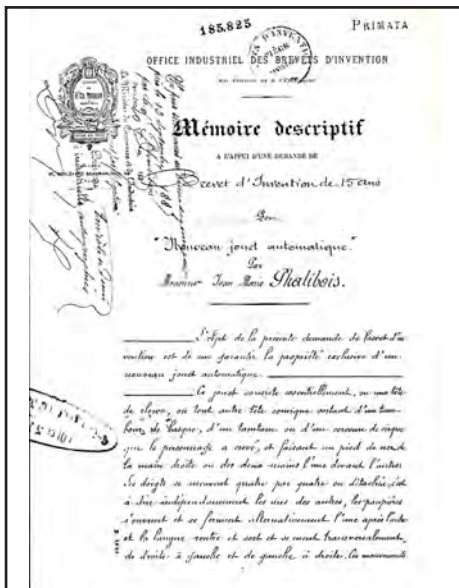 185,825
PRIMATA
OFFICE INDUSTRIEL DES BREVETS D'INVENTION
Mémoire descriptif
A L'APPUI D'UNE DEMANDE DE
Brevet d'Invention de 15 ans
Pour
"Nouveau jouet automatique."
Par
Monsieur Jean Marie Phalibois.
L'objet de la présente demande de brevet d'in
vention est de me garantir la propriété exclusive d'un
nouveau jouet automatique
Ce jouet consiste essentiellement, en une tête
de clown, ou tout autre tête comique sortant d'un tam-
bour de basque, d'un tamtam ou d'un cerceau de cirque
que le personnage a crevé, et faisant un pied de nez de
la main droite ou des deux mains l'une devant l'autre.
Les doigts se meuvent quatre par quatre ou détachés, c'est
à dire indépendamment les uns des autres, les paupières
s'ouvrent et se ferment alternativement l'une après l'autre
et la langue rentre et sort et se meut transversalement,
de droite à gauche et de gauche à droite. Ces mouvements